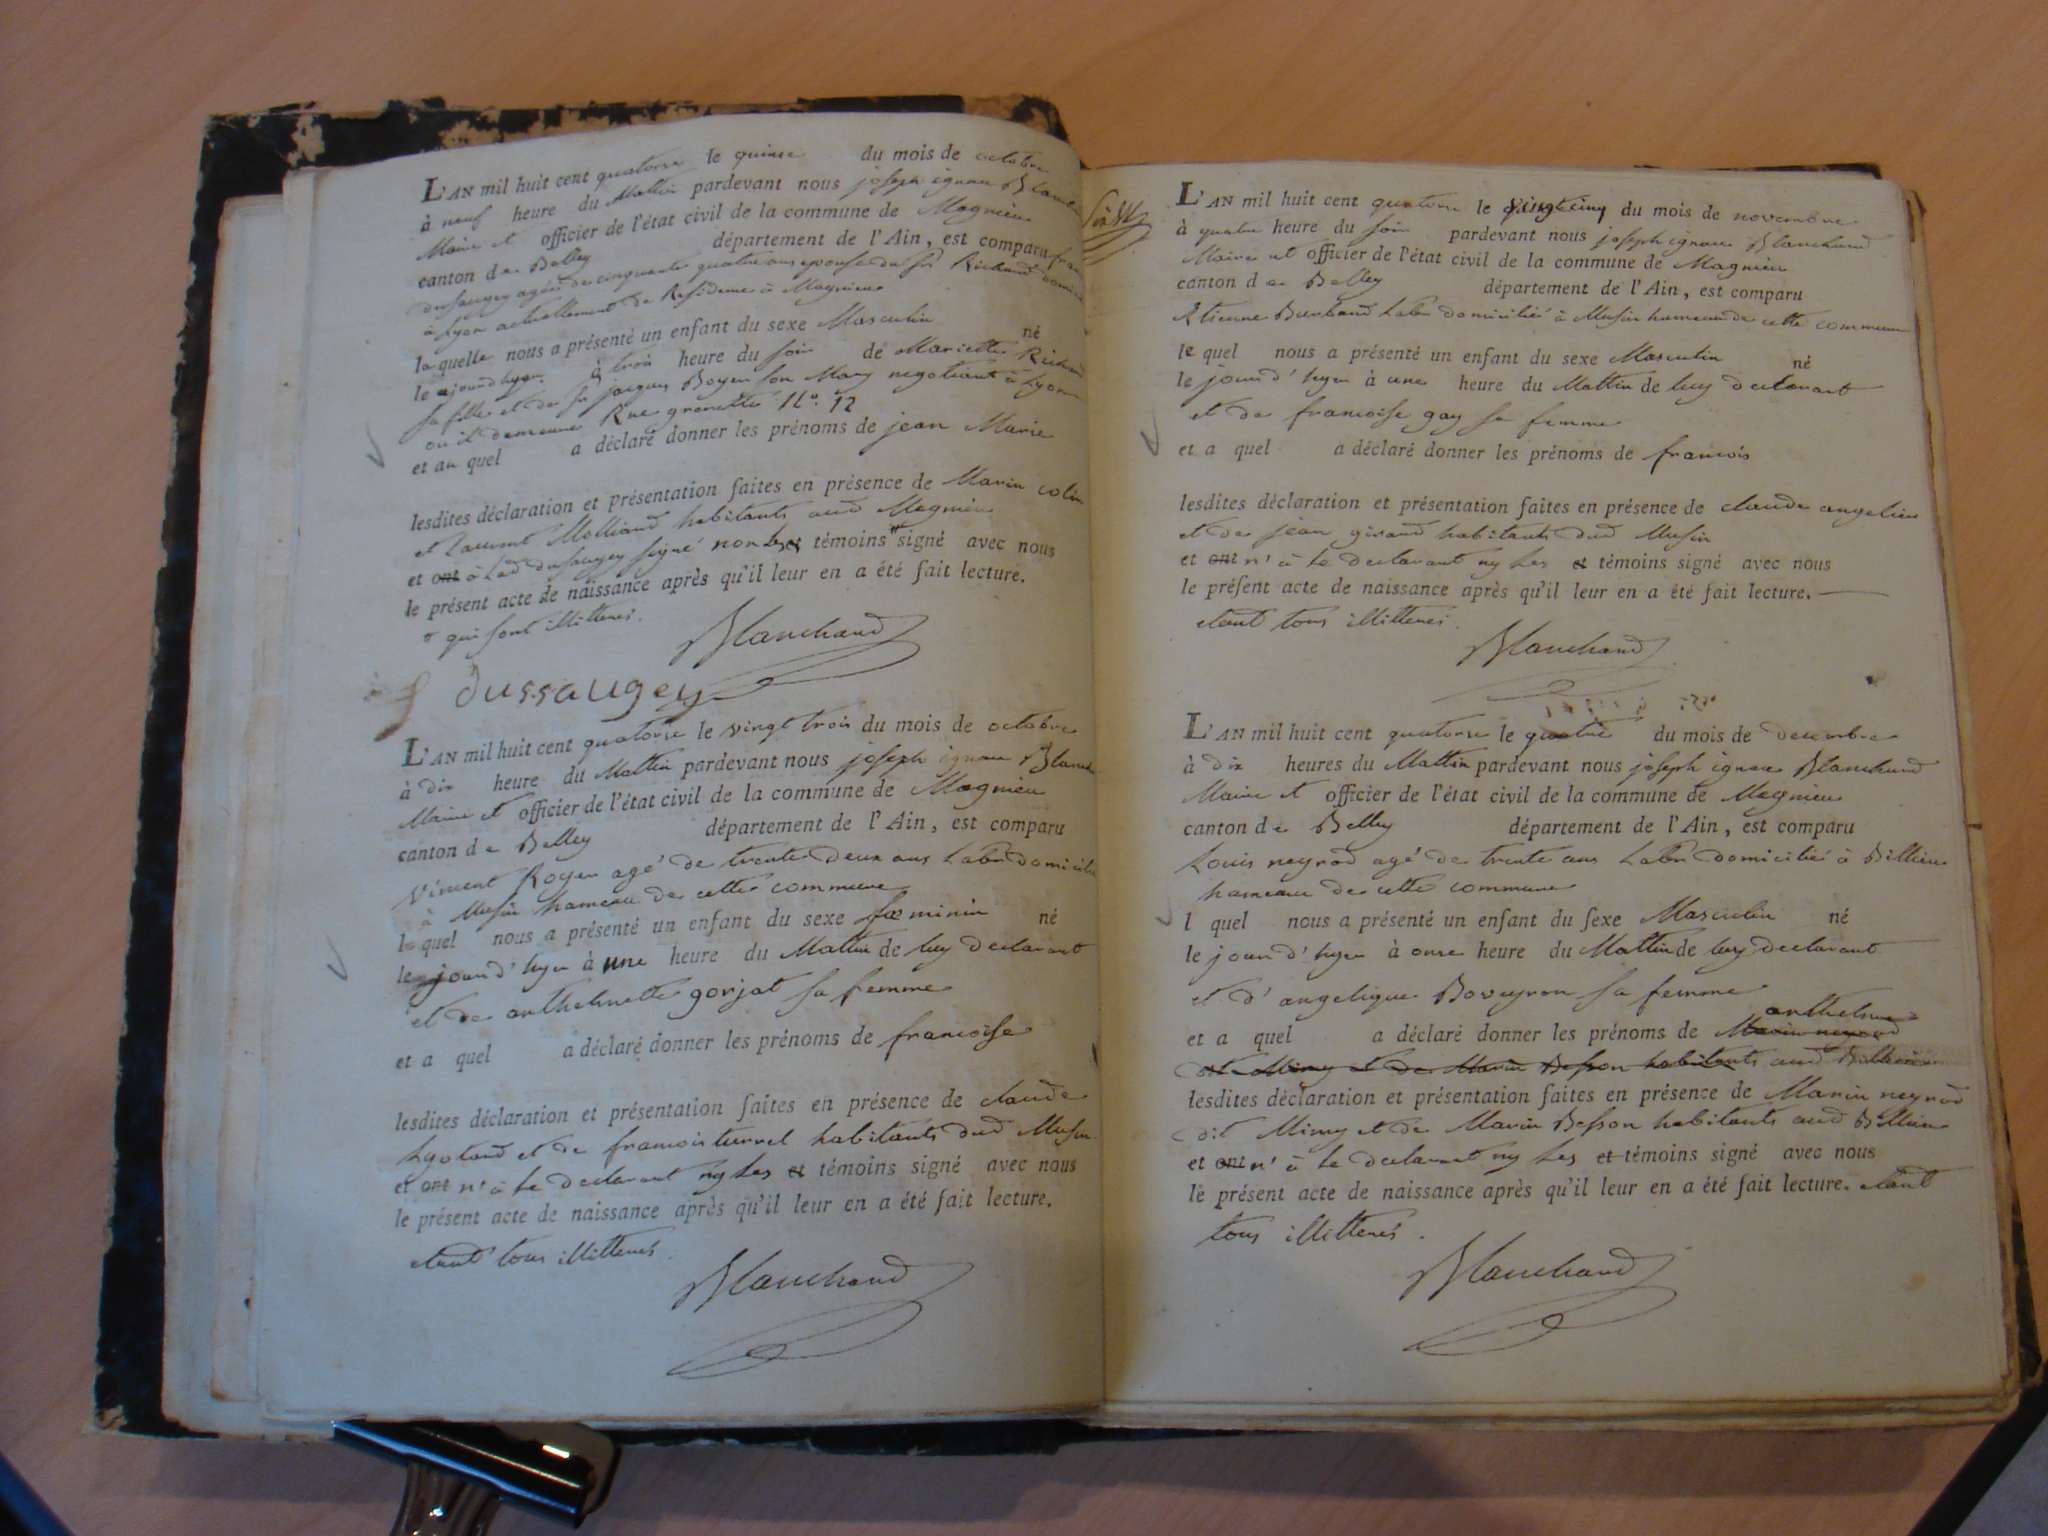 L'AN mil huit cent quatorze le quinze du mois de octobre
à neuf heure du Mattin pardevant nous joseph ignace
Maire et officier de l'état civil de la commune de Magnieu
canton de Belley département de l'Ain, est comparu
dusaugey agée de cinquante quatre ans epouse du Sr Richard
à Lyon actuellement de Residence à Magnieu
laquelle nous a présenté un enfant du sexe Masculin né
le jourd'hyer à trois heure du soir de Mariette Richard
sa fille et du Sr jacques Boyer son Mary negotiant à Lyon
ou il demeure Rue grenette No. 12
et au quel a déclaré donner les prénoms de jean Marie
lesdites déclaration et présentation faites en présence de Marin colin
et Laurent Molliard habitants aud Magnieu
et ont à Lad dusaugey signé non les et témoins signé avec nous
le présent acte de naissance après qu'il leur en a été fait lecture.
qui sont illitterés.
Blanchard
f dussaugey
L'AN mil huit cent quatorze le vingt trois du mois de octobre
à dix heure du Mattin pardevant nous joseph ignace
Maire et officier de l'état civil de la commune de Magnieu
canton de Belley département de l'Ain, est comparu
Vincent Royer agé de trente deux ans Labr domicilié
à Musin hameau de cette commune
le quel nous a présenté un enfant du sexe fœminin né
le jourd'hyer à une heure du Mattin de luy declarant
et de anthelmette gorjat sa femme
et a quel a déclaré donner les prénoms de francoise
lesdites déclaration et présentation faites en présence de claude
Lyotard et de francois turrel habitants dud Musin
et ont n'à le declarant ny les et témoins signé avec nous
le présent acte de naissance après qu'il leur en a été fait lecture.
etant tous illitterés.
Blanchard
L'AN mil huit cent quatorze le vingt cinq du mois de novembre
à quatre heure du soir pardevant nous joseph ignace Blanchard
Maire et officier de l'état civil de la commune de Magnieu
canton de Belley département de l'Ain, est comparu
Etienne Burbaud Labr domicilié à Musin hameau de cette commune
le quel nous a présenté un enfant du sexe Masculin né
le jourd'hyer à une heure du Mattin de luy declarant
et de francoise gay sa femme
et a quel a déclaré donner les prénoms de francois
lesdites déclaration et présentation faites en présence de claude angelier
et de jean giraud habitants dud Musin
et ont n'à le declarant ny les et témoins signé avec nous
le présent acte de naissance après qu'il leur en a été fait lecture.
etant tous illitterés.
Blanchard
L'AN mil huit cent quatorze le quatre du mois de decembre
à dix heures du Mattin pardevant nous joseph ignace Blanchard
Maire et officier de l'état civil de la commune de Magnieu
canton de Belley département de l'Ain, est comparu
Louis neyrod agé de trente ans Labr domicilié à Billieu
hameau de cette commune
l quel nous a présenté un enfant du sexe Masculin né
le jourd'hyer à onze heure du Mattin de luy declarant
et d'angelique Boveyron sa femme
anthelme
et a quel a déclaré donner les prénoms de Marin neyrod
dit Mimy et de Marin Besson habitants aud Billieu
lesdites déclaration et présentation faites en présence de Marin neyrod
dit Mimy et de Marin Besson habitants aud Billieu
et ont n'à le declarant ny les et témoins signé avec nous
le présent acte de naissance après qu'il leur en a été fait lecture. etant
tous illitterés.
Blanchard